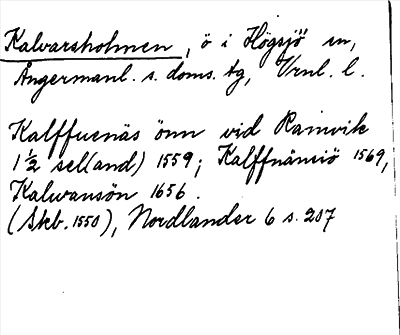 Kalvarsholmen, ö i Högsjö sn,
Ångermanl. s. doms. tg, Vrnl. l.
Kalffuenäs önn vid Ramvik
1 ½ sel(and) 1559; Kalffnämiö 1569,
Kalwansön 1656.
(Skb. 1550), Nordlander 6 s. 207